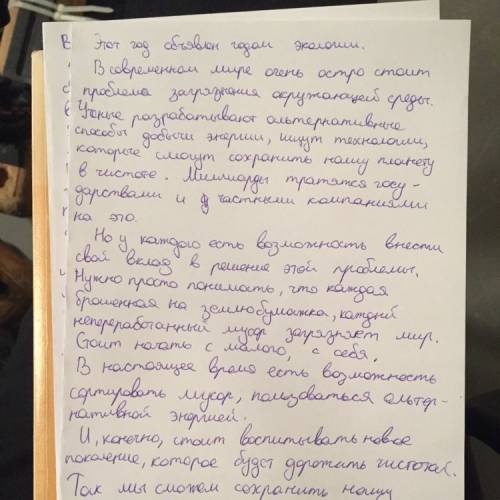 Этот год объявлен годом экологии.
В современном мире очень остро стоит
проблема загрязнения окружающей среды.
Ученые разрабатывают альтернативные
способы добычи энергии, ищут технологии,
которые смогут сохранить нашу планету
в чистоте. Миллиарды тратятся госу-
дарствами и частными компаниями
на это.
Но у каждого есть возможность внести
свой вклад в решение этой проблемы.
Нужно просто понимать, что каждая
брошенная на землю бумажка, каждый
непереработанный мусор загрязняет мир.
Стоит начать с малого, с себя.
В настоящее время есть возможность
сортировать мусор, пользоваться альтер-
нативной энергией.
И, конечно, стоит воспитывать новое
поколение, которое будет дорожить чистотой.
Так мы сможем сохранить нашу